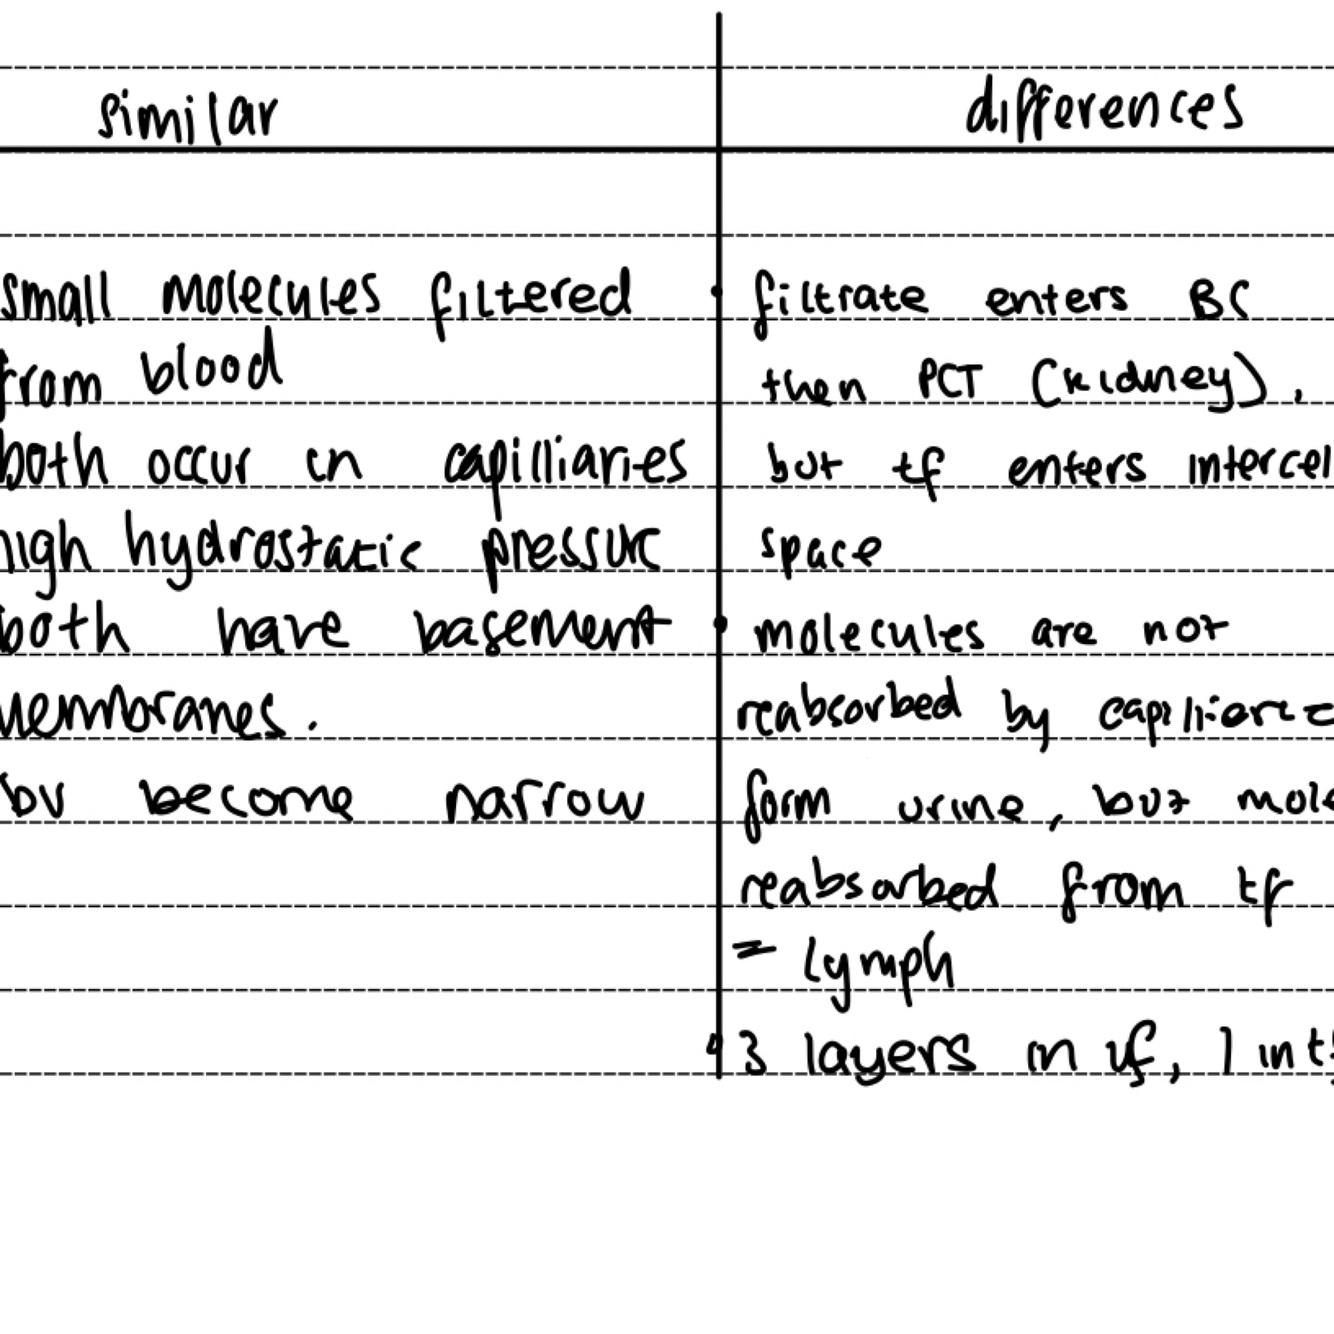 similar
differences
small molecules filtered
from blood
both occur in capilliaries
high hydrostatic pressure
both have basement
membranes.
bv become narrow
• filtrate enters BC
then PCT (kidney),
but tf enters intercel
space
• molecules are not
reabsorbed by
form urine, but mole
reabsorbed from tf
= lymph
• 3 layers in uf, 1 in tf